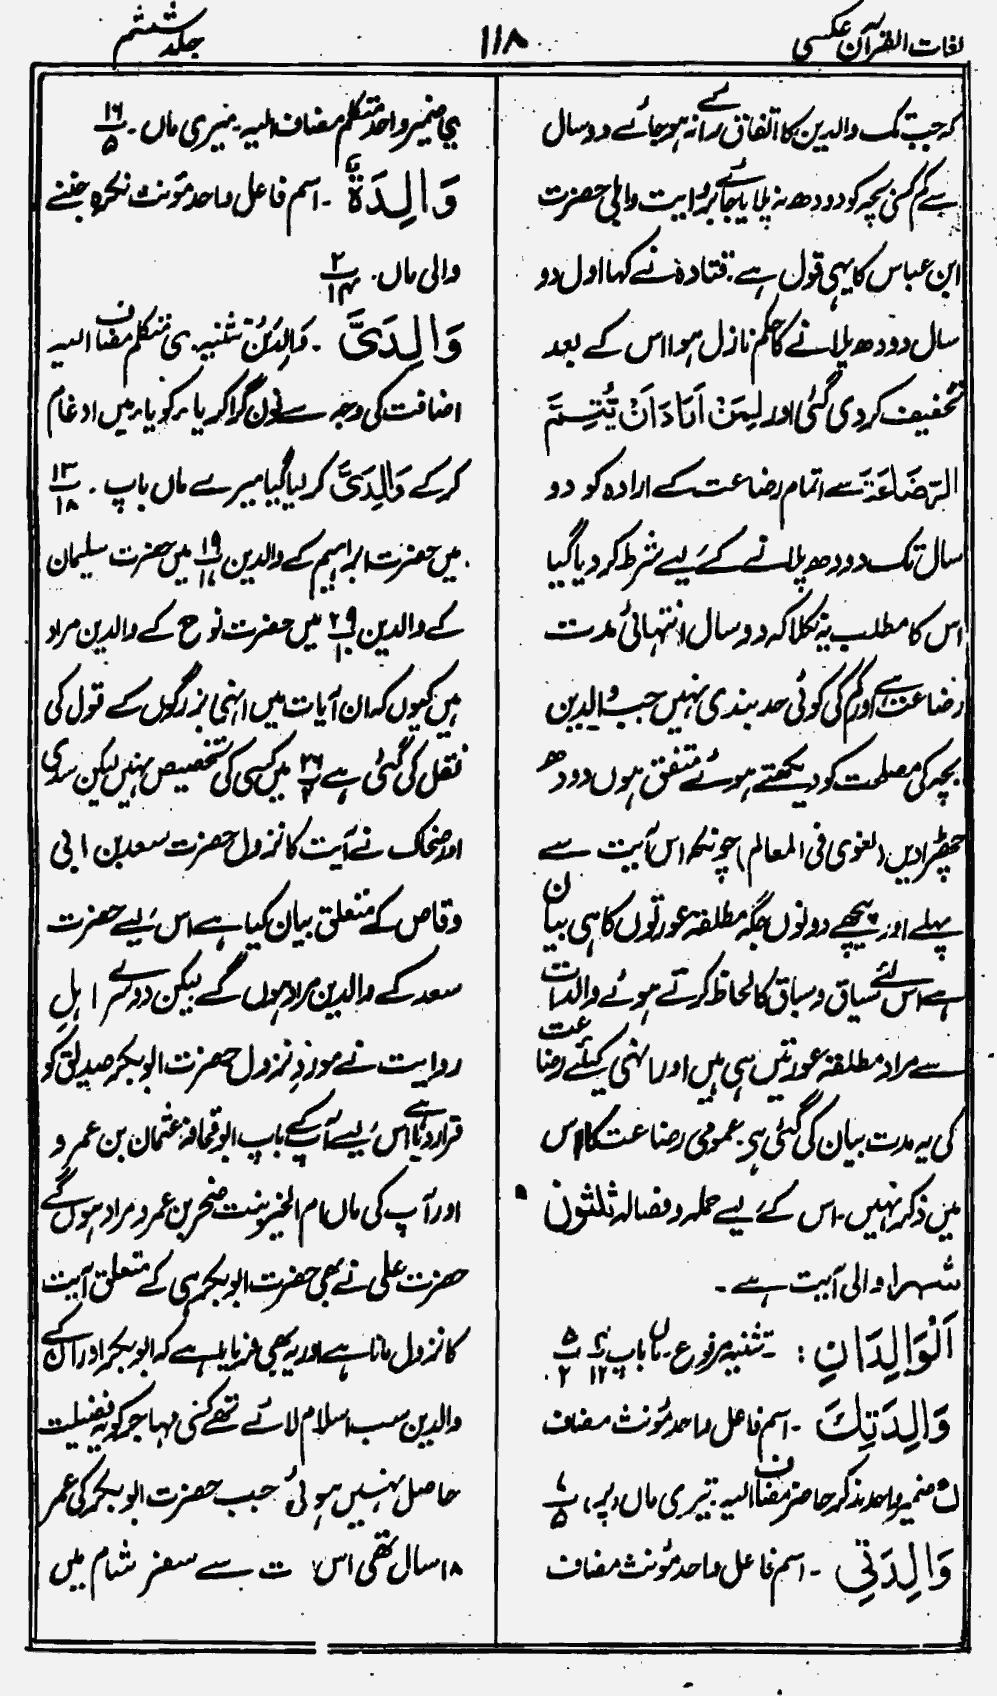 لغات القرآن عکسی
۱۱۸
جلد ششم
کہ جب تک والدین کا اتفاق رائے نہ ہو جائے دو سال
سے کم کسی بچہ کو دودھ نہ پلایا جائے بروایت والبی حضرت
ابن عباس کا یہی قول ہے۔ قتادہ نے کہا اول دو
سال دودھ پلانے کا حکم نازل ہوا اس کے بعد
تخفیف کر دی گئی اور لِمَنْ اَرَادَ اَنْ یُّتِمَّ
الرَّضَاعَةَ سے اتمام رضاعت کے ارادہ کو دو
سال تک دودھ پلانے کے لیے شرط کر دیا گیا
اس کا مطلب یہ نکلا کہ دو سال انتہائی مدت
رضاعت ہے اور کم کی کوئی حد بندی نہیں جب والدین
بچہ کی مصلحت کو دیکھتے ہوئے متفق ہوں دودھ
چھڑا دیں (بغوی فی المعالم) چونکہ اس آیت سے
پہلے اور پیچھے دونوں جگہ مطلقہ عورتوں کا ہی بیان
ہے اس لئے سیاق و سباق کا لحاظ کرتے ہوئے والدات
سے مراد مطلقہ عورتیں ہی ہیں اور انہی کیلئے رضاعت
کی یہ مدت بیان کی گئی ہے۔ عمومی رضاعت کا اس
میں ذکر نہیں۔ اس کے لیے حملہ وفصالہ ثلثون
شہرا والی آیت ہے۔
اَلْوَالِدَانِ: ۔ تثنیہ مرفوع۔ ماں باپ ۴/۱۲ ۵/۲
وَالِدَتِكَ ۔ اسم فاعل واحد مؤنث مضاف
ك ضمیر واحد مذکر حاضر مضاف الیہ۔ تیری ماں (پر) ۷/۵
وَالِدَتِي ۔ اسم فاعل واحد مؤنث مضاف
ي ضمیر واحد متکلم مضاف الیہ۔ میری ماں۔ ۱۶/۵
وَالِدَةٌ ۔ اسم فاعل واحد مؤنث نکرہ جننے
والی ماں۔ ۲/۱۴
وَالِدَيَّ ۔ وَالِدَیْنِ تثنیہ۔ ی متکلم مضاف الیہ
اضافت کی وجہ سے نون گرا کر یاء کو یاء میں ادغام
کر کے وَالِدَيَّ کر لیا گیا میرے ماں باپ۔ ۱۳/۱۸
میں حضرت ابراہیم کے والدین ۱۹/۱۷ میں حضرت سلیمان
کے والدین ۲۹/۱۰ میں حضرت نوح کے والدین مراد
ہیں کیوں کہ ان آیات میں انہی بزرگوں کے قول کی
نقل کی گئی ہے ۲۶/۲ میں کسی کی تخصیص نہیں لیکن سدی
اور ضحاک نے آیت کا نزول حضرت سعد بن ابی
وقاص کے متعلق بیان کیا ہے اس لیے حضرت
سعد کے والدین مراد ہوں گے لیکن دوسرے اہلِ
روایت نے موردِ نزول حضرت ابوبکر صدیق کو
قرار دیا ہے اس لیے آپ کے باپ ابو قحافہ عثمان بن عمرو
اور آپ کی ماں ام الخیر بنت صخر بن عمرو مراد ہوں گے
حضرت علی نے بھی حضرت ابوبکر ہی کے متعلق آیت
کا نزول مانا ہے اور یہ بھی فرمایا ہے کہ ابوبکر اور ان کے
والدین سب اسلام لائے تھے کسی مہاجر کو یہ فضیلت
حاصل نہیں ہوئی جب حضرت ابوبکر کی عمر
۱۸ سال تھی اس ت سے سفر شام میں